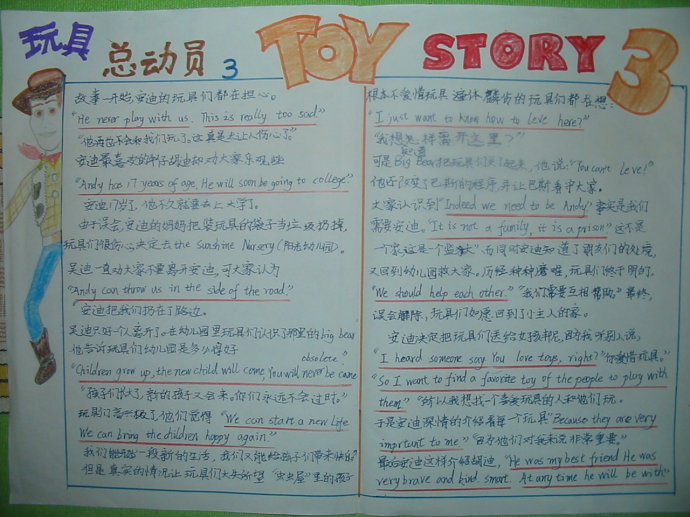 玩具
总动员 3
TOY STORY 3
故事一开始,安迪的玩具们都在担心。
"He never play with us. This is really too sad."
"他再也不会和我们玩了。这真是太让人伤心了"
安迪最喜欢的牛仔胡迪却劝大家乐观些
"Andy has 17 years of age, He will soon be going to college."
安迪17岁了,他不久就要去上大学了。
由于误会,安迪的妈妈把装玩具的袋子当垃圾扔掉,
玩具们很伤心决定去the sunshine Nursery(阳光幼儿园)。
吴迪一直劝大家不要离开安迪,可大家认为
"Andy can throw us in the side of the road"
安迪把我们扔在了路边。
吴迪只好一个人离开了。在幼儿园里玩具们认识了那里的big bear
他告诉玩具们幼儿园是多么得好
obsolete"
"Children grow up, the new child will come, You will never be came
"孩子们长大了,新的孩子又会来。你们永远不会过时。"
玩具们高兴极了他们觉得 "We can start a new life
We can bring the children happy again"
我们能开始一段新的生活,我们又能给孩子们带来快乐了
但是真实的情况让玩具们大失所望 "虫虫屋"里的孩子
根本不爱惜玩具 遍体鳞伤的玩具们都在想:
"I just want to know how to leve here?"
"我想知道怎样离开这里?"
可是Big Bear把玩具们关了起来,他说:"You can't leve!"
他还改变了巴斯的程序,并让巴斯看守大家。
大家认识到"Indeed we need to be Andy" 事实是我们
需要安迪。"It is not a family, it is a prison" 这不是
一个家,这是一个监狱" 而同时安迪知道了朋友们的处境,
又回到幼儿园救大家,历经种种磨难,玩具们终于明白,
"We should help each other." "我们需要互相帮助" 最终,
误会解除,玩具们如愿回到小主人的家。
安迪决定把玩具们送给女孩邦尼,因为我听别人说,
"I heard someone say You love toys, right?" "你爱惜玩具。"
"So I want to find a favorite toy of the people to play with
them" "所以我想找一个喜爱玩具的人和他们玩。
于是安迪深情的介绍着每一个玩具"Because they are very
imprtunt to me" "因为他们对我来说非常重要。"
最后安迪这样介绍胡迪,"He was my best friend He was
very brave and kind. smart. At any time he will be with"